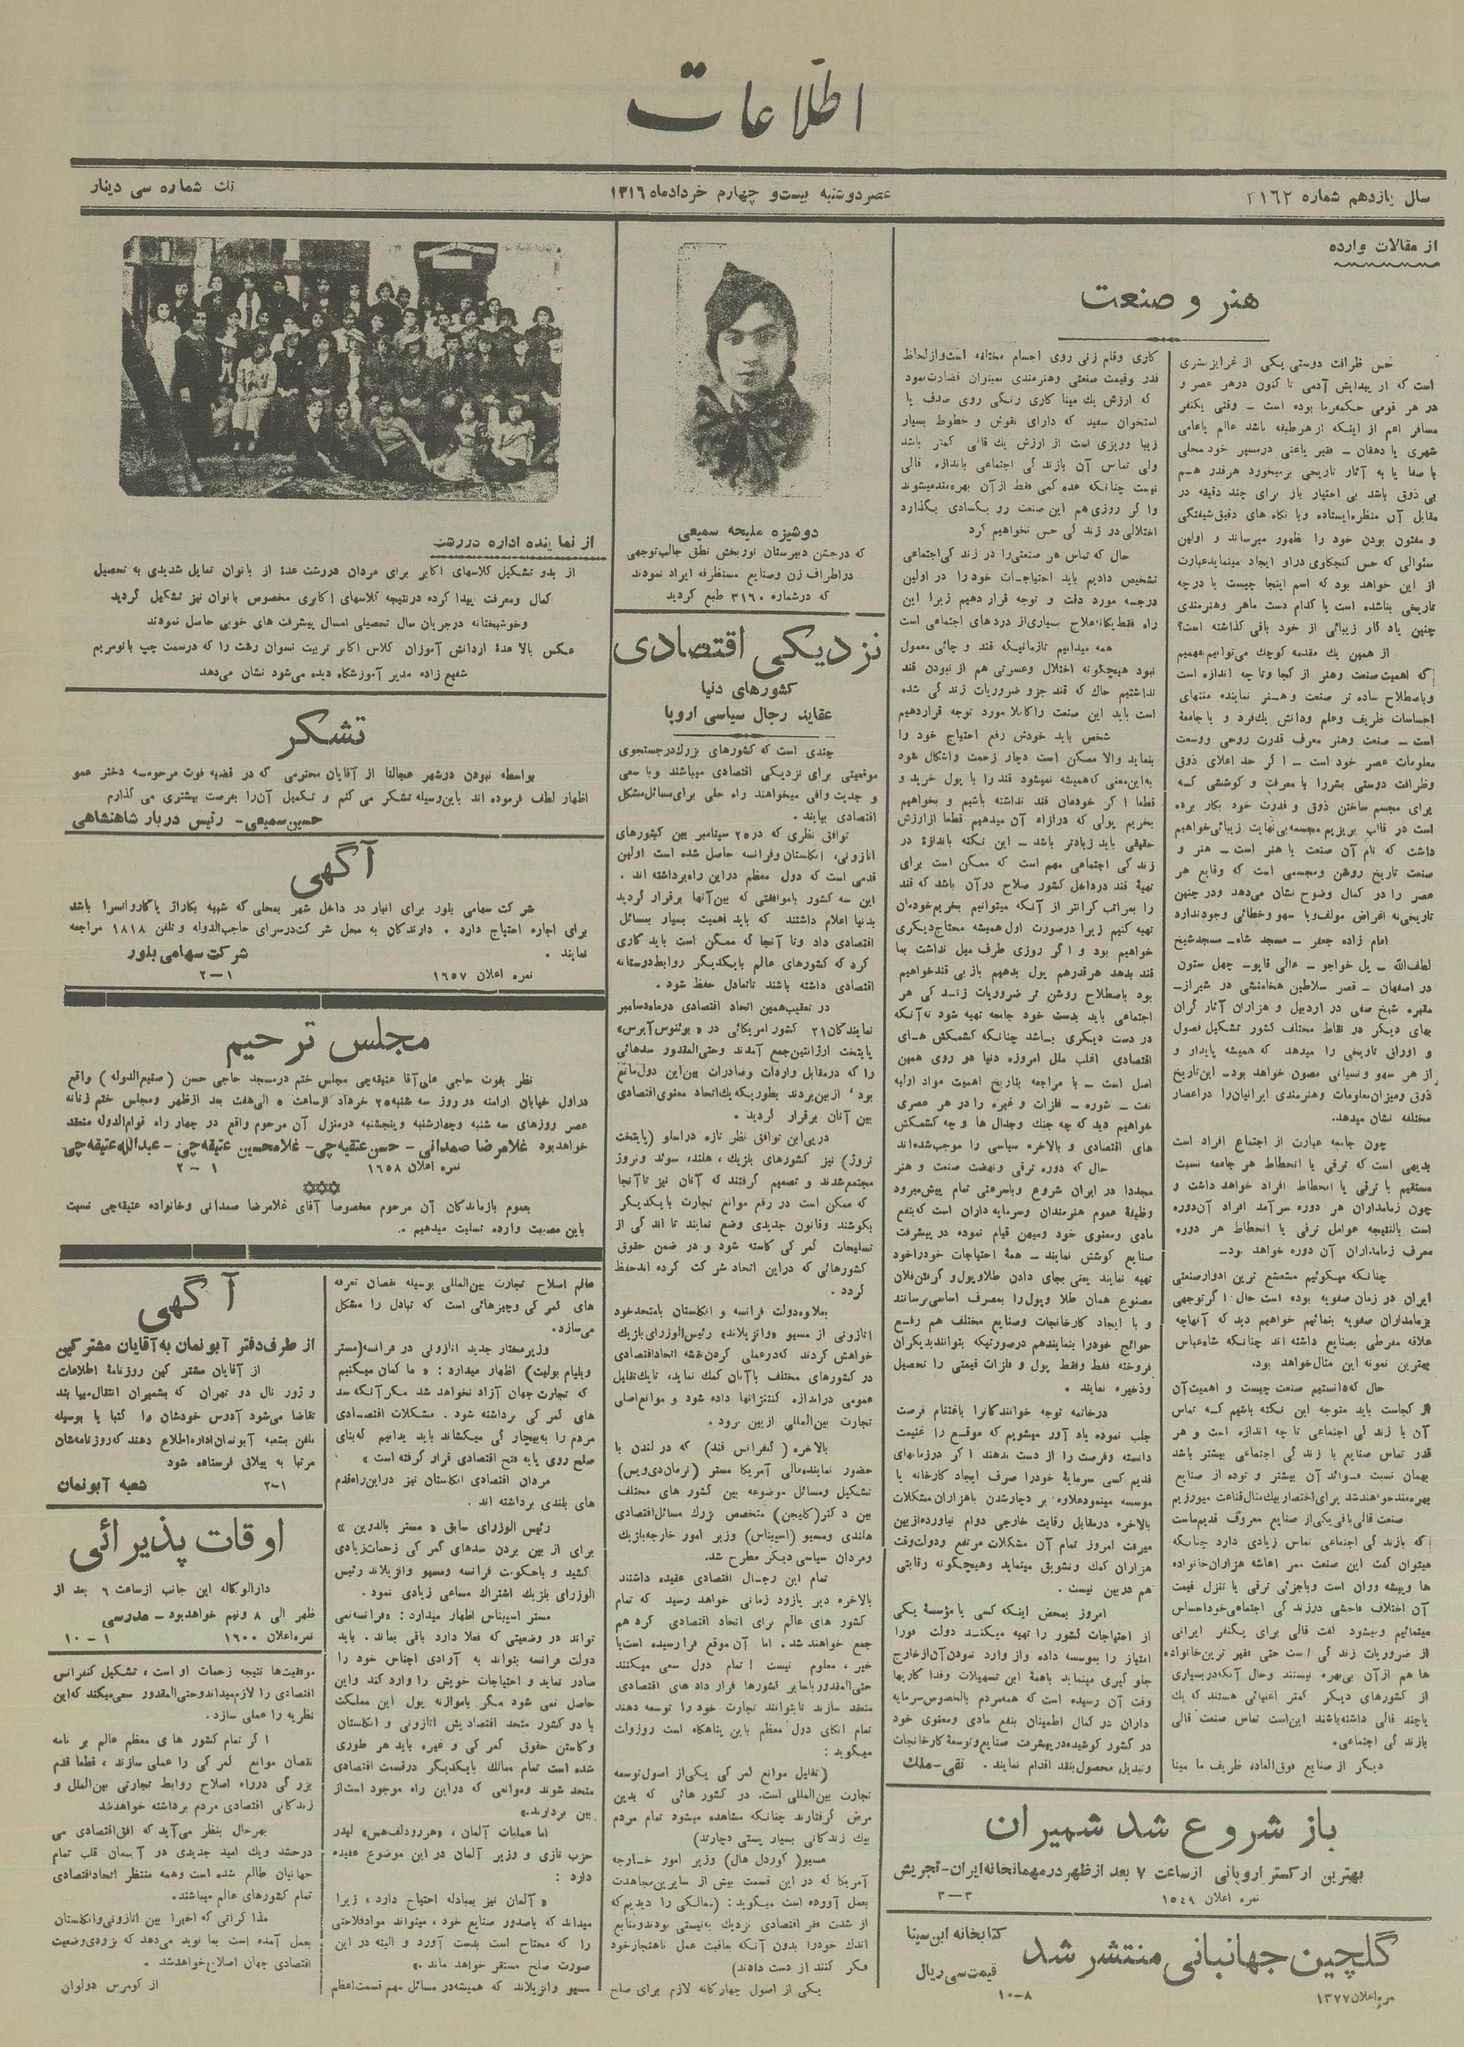 اطلاعات
سال یازدهم شماره ۳۱۶۲
عصر دوشنبه بیست و چهارم خردادماه ۱۳۱۶
تك شماره سی دینار
از مقالات وارده
هنر و صنعت
حس ظرافت دوستی یکی از غرایز بشری
است که از پیدایش آدمی تا کنون در هر عصر و
در هر قومی حکمفرما بوده است ـ وقتی یکنفر
مسافر اعم از اینکه از هر طبقه باشد عالم یا عامی
شهری یا دهقان ـ فقیر یا غنی در مسیر خود محلی
با صفا یا به آثار تاریخی بر میخورد هر قدر هم
بی ذوق باشد بی اختیار باز برای چند دقیقه در
مقابل آن منظره ایستاده و با نگاه های دقیق شیفتگی
و مفتون بودن خود را بظهور میرساند و اولین
سئوالی که حس کنجکاوی در او ایجاد مینماید عبارت
از این خواهد بود که اسم اینجا چیست یا در چه
تاریخی بنا شده است یا کدام دست ماهر و هنرمندی
چنین یادگار زیبائی از خود باقی گذاشته است؟
از همین یك مقدمه کوچك می توانیم بفهمیم
که اهمیت صنعت و هنر از کجا و تا چه اندازه است
و باصطلاح ساده تر صنعت و هنر نماینده منتهای
احساسات ظریف و علم و دانش یك فرد و یا جامعهٔ
است ـ صنعت و هنر معرف قدرت روحی و وسعت
معلومات عصر خود است ـ اگر حد اعلای ذوق
و ظرافت دوستی بشر را با معرفت و کوششی که
برای مجسم ساختن ذوق و قدرت خود بکار برده
است در قالب بریزیم مجسمه بی نهایت زیبائی خواهیم
داشت که نام آن صنعت یا هنر است ـ هنر و
صنعت تاریخ روشن و مجسمی است که وقایع هر
عصر را در کمال وضوح نشان می دهد و در چنین
تاریخی نه اغراض مولف و یا سهو و خطائی وجود ندارد
امام زاده جعفر ـ مسجد شاه ـ مسجد شیخ
لطف الله ـ پل خواجو ـ عالی قاپو ـ چهل ستون
در اصفهان ـ قصر سلاطین هخامنشی در شیراز ـ
مقبره شیخ صفی در اردبیل و هزاران آثار گران
بهای دیگر در نقاط مختلف کشور تشکیل فصول
و اوراق تاریخی را میدهد که همیشه پایدار و
از هر سهو و نسیانی مصون خواهد بود ـ این تاریخ
ذوق و میزان معلومات و هنرمندی ایرانیان را در اعصار
مختلفه نشان میدهد.
چون جامعه عبارت از اجتماع افراد است
بدیهی است که ترقی یا انحطاط هر جامعه نسبت
مستقیم با ترقی یا انحطاط افراد خواهد داشت و
چون زمامداران هر دوره سر آمد افراد آن دوره
است بالنتیجه عوامل ترقی یا انحطاط هر دوره
معرف زمامداران آن دوره خواهد بود ـ
چنانکه میگوئیم مشعشع ترین ادوار صنعتی
ایران در زمان صفویه بوده است حال اگر توجهی
بزمامداران صفویه بنمائیم خواهیم دید که آنها چه
علاقه مفرطی بصنایع داشته اند چنانکه شاه عباس
بهترین نمونه این مثال خواهد بود.
حال که دانستیم صنعت چیست و اهمیت آن
از کجاست باید متوجه این نکته باشیم که تماس
آن با زندگی اجتماعی تا چه اندازه است و هر
قدر تماس صنایع با زندگی اجتماعی بیشتر باشد
بهمان نسبت فوائد آن بیشتر و توده از صنایع
بهره مند خواهند شد برای اختصار بیك مثال قناعت میورزیم
صنعت قالی بافی یکی از صنایع معروف قدیم ماست
که با زندگی اجتماعی تماس زیادی دارد چنانکه
میتوان گفت این صنعت ممر اعاشه هزاران خانواده
ها و پیشه وران است و با جزئی ترقی یا تنزل قیمت
آن اختلاف فاحشی در زندگی اجتماعی خود احساس
مینمائیم و میشود گفت قالی برای یکنفر ایرانی
از ضروریات زندگی است حتی فقیر ترین خانواده
ها هم از آن بی بهره نیستند و حال آنکه در بسیاری
از کشورهای دیگر کمتر اعیانی هستند که یك
یا چند قالی داشته باشند این است تماس صنعت قالی
با زندگی اجتماعی.
دیگر از صنایع فوق العاده ظریف ما مینا
کاری و قلم زنی روی اجسام مختلفه است و از لحاظ
قدر و قیمت صنعتی و هنرمندی میتوان قضاوت نمود
که ارزش یك مینا کاری رنگی روی صدف یا
استخوان سفید که دارای نقوش و خطوط بسیار
زیبا و ریزی است از ارزش یك قالی کمتر باشد
ولی تماس آن با زندگی اجتماعی باندازه قالی
نیست چنانکه عده کمی فقط از آن بهره مند میشوند
و اگر روزی هم این صنعت رو بکسادی بگذارد
اختلالی در زندگی حس نخواهیم کرد
حال که تماس هر صنعتی را در زندگی اجتماعی
تشخیص دادیم باید احتیاجات خود را در اولین
درجه مورد دقت و توجه قرار دهیم زیرا این
راه فقط یگانه علاج بسیاری از دردهای اجتماعی است
همه میدانیم تا زمانیکه قند و چائی معمول
نبود هیچگونه اختلال و عسرتی هم از نبودن قند
نداشتیم حال که قند جزو ضروریات زندگی شده
است باید این صنعت را کاملا مورد توجه قرار دهیم
شخص باید خودش رفع احتیاج خود را
بنماید والا ممکن است دچار زحمت و اشکال شود
به این معنی که همیشه نمیشود قند را با پول خرید و
قطعا اگر خودمان قند نداشته باشیم و بخواهیم
بخریم پولی که در ازاء آن میدهیم قطعا از ارزش
حقیقی باید زیادتر باشد ـ این نکته باندازهٔ در
زندگی اجتماعی مهم است که ممکن است برای
تهیهٔ قند در داخل کشور صلاح در آن باشد که قند
را بمراتب گرانتر از آنکه میتوانیم بخریم خودمان
تهیه کنیم زیرا در صورت اول همیشه محتاج دیگری
خواهیم بود و اگر روزی طرف میل نداشت بما
قند بدهد هر قدر هم پول بدهیم باز بی قند خواهیم
بود باصطلاح روشن تر ضروریات زندگی هر
اجتماعی باید بدست خود جامعه تهیه شود نه آنکه
در دست دیگری باشد چنانکه کشمکش های
اقتصادی اغلب ملل امروزه دنیا هم روی همین
اصل است ـ با مراجعه بتاریخ اهمیت مواد اولیه
نفت ـ شوره ـ فلزات و غیره را در هر عصری
خواهیم دید که چه جنك و جدال ها و چه کشمکش
های اقتصادی و بالاخره سیاسی را موجب شده اند
حال که دوره ترقی و نهضت صنعت و هنر
مجددا در ایران شروع و با سرعتی تمام پیش میرود
وظیفهٔ عموم هنرمندان و سرمایه داران است که بنفع
مادی و معنوی خود و میهن قیام نموده در پیشرفت
صنایع کوشش نمایند ـ همهٔ احتیاجات خود را خود
تهیه نمایند یعنی بجای دادن طلا و پول و گرفتن فلان
مصنوع همان طلا و پول را بمصرف اساسی برسانند
و با ایجاد کارخانجات و صنایع مختلف هم رفع
حوائج خود را بنمایند هم در صورتیکه بتوانند بدیگران
فروخته فقط و فقط پول و فلزات قیمتی را تحصیل
و ذخیره نمایند .
در خاتمه توجه خوانندگان را باغتنام فرصت
جلب نموده یاد آور میشویم که موقع را غنیمت
دانسته و فرصت را از دست ندهند اگر در زمانهای
قدیم کسی سرمایهٔ خود را صرف ایجاد کارخانه یا
موسسه مینمود علاوه بر دچار شدن با هزاران مشکلات
بالاخره در مقابل رقابت خارجی دوام نیاورده از بین
میرفت امروز تمام آن مشکلات مرتفع و دولت وقت
هزاران کمك و تشویق مینماید و هیچگونه رقابتی
هم در بین نیست .
امروز بمحض اینکه کسی یا مؤسسهٔ یکی
از احتیاجات کشور را تهیه میکند دولت فورا
امتیاز را بموسسه داده و از وارد نمودن آن از خارج
جلوگیری مینماید با همهٔ این تسهیلات و قدا کاریها
وقت آن رسیده است که همه مردم بالخصوص سرمایه
داران در کمال اطمینان بنفع مادی و معنوی خود
در کشور کوشیده در پیشرفت صنایع و توسعهٔ کارخانجات
و تبدیل محصول بنقد اقدام نمایند . نقی ـ ملك
باز شروع شد شمیران
بهترین ارکستر اروپائی از ساعت ۷ بعد از ظهر در مهمانخانه ایران ـ تجریش
نمره اعلان ۱۵۴۹ ۳ـ۳
گلچین جهانبانی منتشر شد
کتابخانه ابن سینا
قیمت سی ریال
نمره اعلان ۱۳۷۷ ۸ـ۱۰
دوشیزه ملیحه سمیعی
که در جشن دبیرستان نوربخش نطق جالب توجهی
در اطراف زن و صنایع مستظرفه ایراد نمودند
که در شماره ۳۱۶۰ طبع گردید
نزدیکی اقتصادی
کشورهای دنیا
عقاید رجال سیاسی اروپا
چندی است که کشورهای بزرك در جستجوی
موقعیتی برای نزدیکی اقتصادی میباشند و با سعی
و جدیت وافی میخواهند راه حلی برای مسائل مشکل
اقتصادی بیابند .
توافق نظری که در ۲۵ سپتامبر بین کشورهای
اتازونی، انگلستان و فرانسه حاصل شده است اولین
قدمی است که دول معظم در این راه برداشته اند .
این سه کشور با موافقتی که بین آنها برقرار گردید
بدنیا اعلام داشتند که باید اهمیت بسیار بمسائل
اقتصادی داد و تا آنجا که ممکن است باید کاری
کرد که کشورهای عالم بایکدیگر روابط دوستانه
اقتصادی داشته باشند تا تعادل حفظ شود .
در تعقیب همین اتحاد اقتصادی در ماه دسامبر
نمایندگان ۲۱ کشور امریکائی در « بوئنوس آیرس»
پایتخت ارژانتین جمع آمدند و حتی المقدور سدهائی
را که در مقابل واردات و صادرات بین این دول مانع
بود ' از بین بردند بطوریکه یك اتحاد معنوی اقتصادی
بین آنان برقرار گردید .
در پی این توافق نظر تازه در اسلو (پایتخت
نروژ) نیز کشورهای بلژیك ، هلند، سوئد و نروژ
مجتمع شدند و تصمیم گرفتند که آنان نیز تا آنجا
که ممکن است در رفع موانع تجارت بایکدیگر
بکوشند و قانون جدیدی وضع نمایند تا اندکی از
تسلیحات گمرکی کاسته شود و در ضمن حقوق
کشورهائی که در این اتحاد شرکت کرده اند حفظ
گردد .
بعلاوه دولت فرانسه و انگلستان با متحد خود
اتازونی از مسیو «وانزیلاند» رئیس الوزرای بلژیك
خواهش کردند که در عملی کردن نقشه اتحاد اقتصادی
در کشورهای مختلف با آنان کمك نماید، تا یك تقلیل
عمومی در اندازه کنتنژانها داده شود و موانع اصلی
تجارت بین المللی از بین برود .
بالاخره ( کنفرانس قند) که در لندن با
حضور نماینده مالی آمریکا مستر (نرمان دیویس)
تشکیل و مسائل موضوعه بین کشور های مختلف
بین دکتر(کلیجن) متخصص بزرك مسائل اقتصادی
هلندی و مسیو (اسپیناس) وزیر امور خارجه بلژیك
و مردان سیاسی دیگر مطرح شد.
تمام این رجال اقتصادی عقیده داشتند
بالاخره دیر یا زود زمانی خواهد رسید که تمام
کشور های عالم برای اتحاد اقتصادی گرد هم
جمع خواهند شد. اما آن موقع فرا رسیده است یا
خیر ، معلوم نیست ! تمام دول سعی میکنند
حتی المقدور با سایر کشورها قرار داد های اقتصادی
منعقد سازند تا بتوانند تجارت خود را توسعه دهند
تمام اتکای دول معظم باین پناهگاه است روزولت
میگوید :
(تقلیل موانع گمرکی یکی از اصول توسعه
تجارت بین المللی است. در کشور هائی که بدین
مرض گرفتارند چنانکه مشاهده میشود تمام مردم
بیك زندگانی بسیار پستی دچارند)
مسیو( کوردل هال) وزیر امور خارجه
آمریکا که در این قسمت بیش از سایرین مجاهدت
بعمل آورده است میگوید : (ممالکی را دیدیم که
از شدت فقر اقتصادی نزدیك به نیستی بودند و منابع
اندك خود را بدون آنکه بعاقبت عمل ناهنجار خود
فکر کنند از دست دادند)
یکی از اصول چهارگانه لازم برای صلح
از نماینده اداره در رشت
از بدو تشکیل کلاسهای اکابر برای مردان در رشت عدهٔ از بانوان تمایل شدیدی به تحصیل
کمال و معرفت پیدا کرده در نتیجه کلاسهای اکابری مخصوص بانوان نیز تشکیل گردید
و خوشبختانه در جریان سال تحصیلی امسال پیشرفت های خوبی حاصل نمودند
عکس بالا عدهٔ از دانش آموزان کلاس اکابر تربیت نسوان رشت را که در سمت چپ بانو مریم
شفیع زاده مدیر آموزشگاه دیده می شود نشان می دهد
تشکر
بواسطه نبودن در شهر عجالتاً از آقایان محترمی که در قضیه فوت مرحومه دختر عمو
اظهار لطف فرموده اند باین وسیله تشکر می کنم و تکمیل آن را بفرصت بیشتری می گذارم
حسین سمیعی ـ رئیس دربار شاهنشاهی
آگهی
شرکت سهامی بلور برای انبار در داخل شهر بمحلی که شبیه بگاراژ یا کاروانسرا باشد
برای اجاره احتیاج دارد . دارندگان به محل شرکت در سرای حاجب الدوله و تلفن ۱۸۱۸ مراجعه
نمایند . شرکت سهامی بلور
نمره اعلان ۱۶۵۷ ۱ـ۲
مجلس ترحیم
نظر بفوت حاجی علی آقا عتیقه چی مجلس ختم در مسجد حاجی حسن (مقیم الدوله) واقع
در اول خیابان ارامنه در روز سه شنبه ۲۵ خرداد از ساعت ۵ الی هفت بعد از ظهر و مجلس ختم زنانه
عصر روزهای سه شنبه و چهارشنبه و پنجشنبه در منزل آن مرحوم واقع در چهار راه قوام الدوله منعقد
خواهد بود غلامرضا صمدانی ـ حسن عتیقه چی ـ غلامحسین عتیقه چی ـ عبدالله عتیقه چی
نمره اعلان ۱۶۵۸ ۱ـ۲
بعموم بازماندگان آن مرحوم مخصوصاً آقای غلامرضا صمدانی و خانواده عتیقه چی نسبت
باین مصیبت وارده تسلیت میدهیم .
عالم اصلاح تجارت بین المللی بوسیله نقصان تعرفه
های گمرکی و چیزهائی است که تبادل را مشکل
می سازد.
وزیر مختار جدید اتازونی در فرانسه (مستر
ویلیام بولیت) اظهار میدارد : « ما گمان میکنیم
که تجارت جهان آزاد نخواهد شد مگر آنکه سد
های گمرکی برداشته شود . مشکلات اقتصادی
مردم را به بیچارگی میکشاند باید بدانیم که بنای
صلح روی پایه فتح اقتصادی قرار گرفته است »
مردان اقتصادی انگلستان نیز در این راه قدم
های بلندی برداشته اند .
رئیس الوزرای سابق « مستر بالدوین »
برای از بین بردن سدهای گمرکی زحمات زیادی
کشید و با حکومت فرانسه و مسیو وانزیلاند رئیس
الوزرای بلژیك اشتراك مساعی زیادی نمود .
مستر اسپیناس اظهار میدارد : «فرانسه نمی
تواند در وضعیتی که فعلا دارد باقی بماند . باید
دولت فرانسه بتواند به آزادی اجناس خود را
صادر نماید و احتیاجات خویش را وارد کند و این
حاصل نمی شود مگر با موازنه پول این مملکت
با دو کشور متحد اقتصادیش اتازونی و انگلستان
و کاستن حقوق گمرکی و غیره باید هر طوری
شده است تمام ممالك بایکدیگر در قسمت اقتصادی
متحد شوند و موانعی که در این راه موجود است از
بین بردارند.»
اما عملیات آلمان ، «هر رودلف هس» لیدر
حزب نازی و وزیر آلمان در این موضوع عقیده
دارد :
« آلمان نیز بمبادله احتیاج دارد ، زیرا
میداند که با صدور صنایع خود ، میتواند مواد فلاحتی
را که محتاج است بدست آورد و البته در این
صورت صلح مستقر خواهد ماند . »
مسیو وانزیلاند که همیشه در مسائل مهم قسمت اعظم
آگهی
از طرف دفتر آبونمان به آقایان مشترکین
از آقایان مشترکین روزنامهٔ اطلاعات
و ژورنال دو تهران که بشمیران انتقال مییابند
تقاضا می شود آدرس خودشان را کتباً یا بوسیله
تلفن بشعبه آبونمان اداره اطلاع دهند که روزنامه شان
مرتبا به ییلاق فرستاده شود
۱ـ۲ شعبه آبونمان
اوقات پذیرائی
دارالوکاله این جانب از ساعت ۶ بعد از
ظهر الی ۸ و نیم خواهد بود ـ مدرسی
نمره اعلان ۱۶۰۰ ۱ـ۱۰
موفقیت ها نتیجه زحمات او است ، تشکیل کنفرانس
اقتصادی را لازم میداند و حتی المقدور سعی میکند که این
نظریه را عملی سازد .
اگر تمام کشور های معظم عالم برنامه
نقصان موانع گمرکی را عملی سازند ، قطعا قدم
بزرگی در راه اصلاح روابط تجارتی بین الملل و
زندگانی اقتصادی مردم برداشته خواهد شد
بهر حال بنظر می آید که افق اقتصادی می
درخشد و یك امید جدیدی در آسمان قلب تمام
جهانیان طالع شده است و همه منتظر اتحاد اقتصادی
تمام کشورهای عالم میباشند.
مذاکراتی که اخیرا بین اتازونی و انگلستان
بعمل آمده است بما نوید می دهد که بزودی وضعیت
اقتصادی جهان اصلاح خواهد شد .
از کومرس دولوان